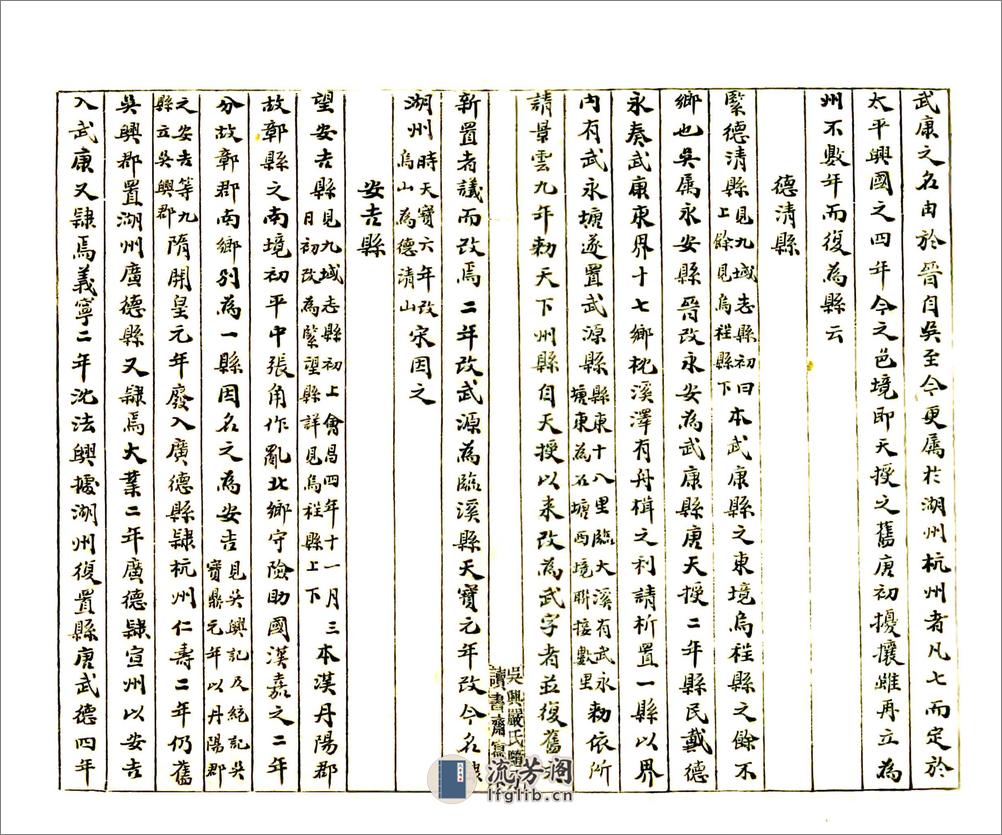 武康之名由於晉自吳至今更属於湖州杭州者凡七而定於
太平興國之四年今之邑境即天授之舊唐初擾攘雖再立為
州不數年而復為縣云
德清縣
緊德清縣見九域志縣初曰上餘見烏程縣下本武康縣之東境烏程縣之餘不
鄉也吳属永安縣晉改永安為武康縣唐天授二年縣民戴德
永奏武康東界十七鄉枕溪澤有舟楫之利請析置一縣以界
内有武永塘遂置武源縣縣東十八里臨大溪有武永塘東為石塘西境聯接數里勅依所
請景雲九年勅天下州縣自天授以来改為武字者並復舊
新置者議而改焉二年改武源為臨溪縣天寶元年改今名隸
湖州時天寶六年改烏山為德清山宋因之
安吉縣
望安吉縣見九域志縣初上會昌四年十一月三日初改為緊望縣詳見烏程縣上下本漢丹陽郡
故鄣縣之南境初平中張角作亂北鄉守險助國漢嘉之二年
分故鄣郡南鄉别為一縣因名之為安吉見吳興記及統記吳寶鼎元年以丹陽郡
之安吉等九縣立吳興郡隋開皇元年廢入廣德縣隸杭州仁壽二年仍舊
吳興郡置湖州廣德縣又隸焉大業二年廣德隸宣州以安吉
入武康又隸焉義寧二年沈法興據湖州復置縣唐武德四年
吳興嚴氏
讀書齋寫
流芳阁
lfglib.cn